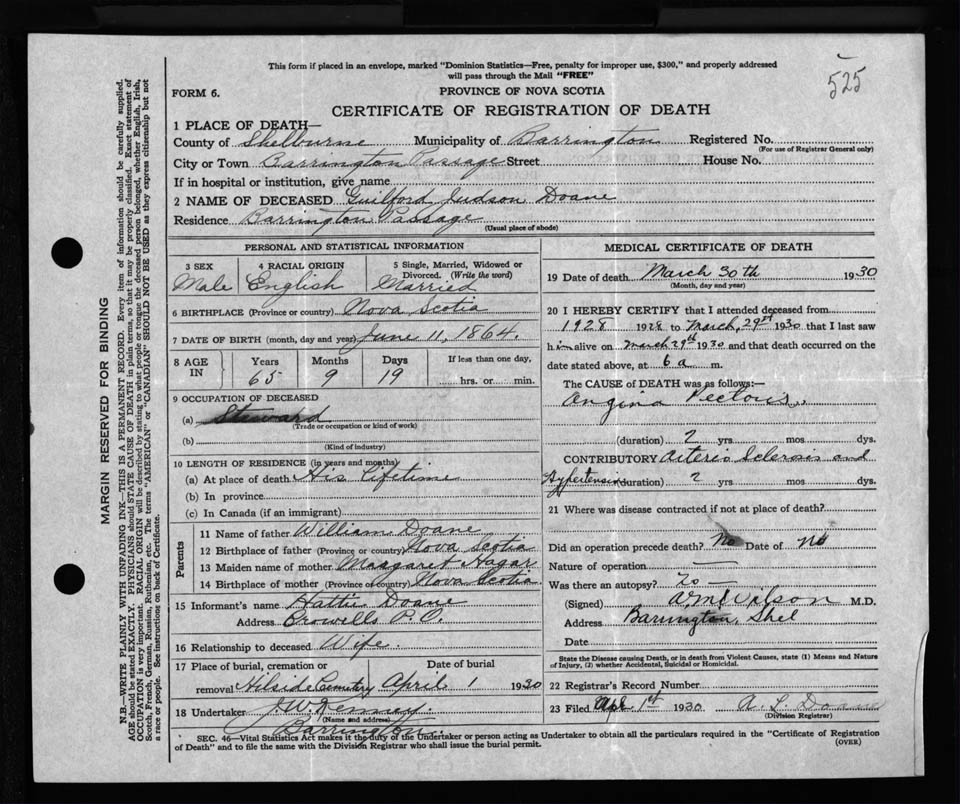 This form if placed in an envelope, marked "Dominion Statistics—Free, penalty for improper use, $300," and properly addressed
will pass through the Mail "FREE"
525
FORM 6.
PROVINCE OF NOVA SCOTIA
CERTIFICATE OF REGISTRATION OF DEATH
1 PLACE OF DEATH—
County of Shelburne Municipality of Barrington Registered No.
(For use of Registrar General only)
City or Town Barrington Passage Street House No.
If in hospital or institution, give name
2 NAME OF DECEASED Guilford Judson Doane
Residence Barrington Passage
(Usual place of abode)
PERSONAL AND STATISTICAL INFORMATION
3 SEX 4 RACIAL ORIGIN 5 Single, Married, Widowed or
Divorced. (Write the word)
Male English Married
6 BIRTHPLACE (Province or country) Nova Scotia
7 DATE OF BIRTH (month, day and year) June 11, 1864.
8 AGE IN Years Months Days If less than one day,
65 9 19 hrs. or min.
9 OCCUPATION OF DECEASED
(a) Steward
(Trade or occupation or kind of work)
(b)
(Kind of industry)
10 LENGTH OF RESIDENCE (in years and months)
(a) At place of death His lifetime
(b) In province
(c) In Canada (if an immigrant)
Parents
11 Name of father William Doane
12 Birthplace of father (Province or country) Nova Scotia
13 Maiden name of mother Margaret Hagar
14 Birthplace of mother (Province or country) Nova Scotia
15 Informant's name Hattie Doane
Address Crowells P.O.
16 Relationship to deceased Wife.
17 Place of burial, cremation or Date of burial
removal Hilside Cemetery April 1 1930
18 Undertaker J.W. Kenney
(Name and address)
Barrington.
MEDICAL CERTIFICATE OF DEATH
19 Date of death March 30th 1930
(Month, day and year)
20 I HEREBY CERTIFY that I attended deceased from
1928 1928 to March, 29th 1930 that I last saw
him alive on March 29th 1930 and that death occurred on the
date stated above, at 6 a m.
The CAUSE OF DEATH was as follows:—
Angina Pectoris.
(duration) 2 yrs mos dys.
CONTRIBUTORY Arterio Sclerosis and
Hypertension (duration) 2 yrs. mos. dys.
21 Where was disease contracted if not at place of death?
Did an operation precede death? No Date of No
Nature of operation —
Was there an autopsy? no —
(Signed) Wilson M.D.
Address Barrington, Shel
Date
State the Disease causing Death, or in death from Violent Causes, state (1) Means and Nature
of Injury, (2) whether Accidental, Suicidal or Homicidal.
22 Registrar's Record Number
23 Filed Apl. 1st 1930 A. L. Doane
(Division Registrar)
SEC. 46—Vital Statistics Act makes it the duty of the Undertaker or person acting as Undertaker to obtain all the particulars required in the "Certificate of Registration
of Death" and to file the same with the Division Registrar who shall issue the burial permit.
(OVER)
MARGIN RESERVED FOR BINDING
N.B.—WRITE PLAINLY WITH UNFADING INK—THIS IS A PERMANENT RECORD. Every item of information should be carefully supplied.
AGE should be stated EXACTLY. PHYSICIANS should STATE CAUSE OF DEATH in plain terms, so that it may be properly classified. Exact statement of
OCCUPATION is very important. RACIAL ORIGIN will be described by stating to what people or tongue the deceased person belonged, whether English, Irish,
Scotch, French, German, Russian, Ruthenian, etc. The terms "AMERICAN" or "CANADIAN" SHOULD NOT BE USED as they express citizenship but not
a race or people. See instructions on back of Certificate.